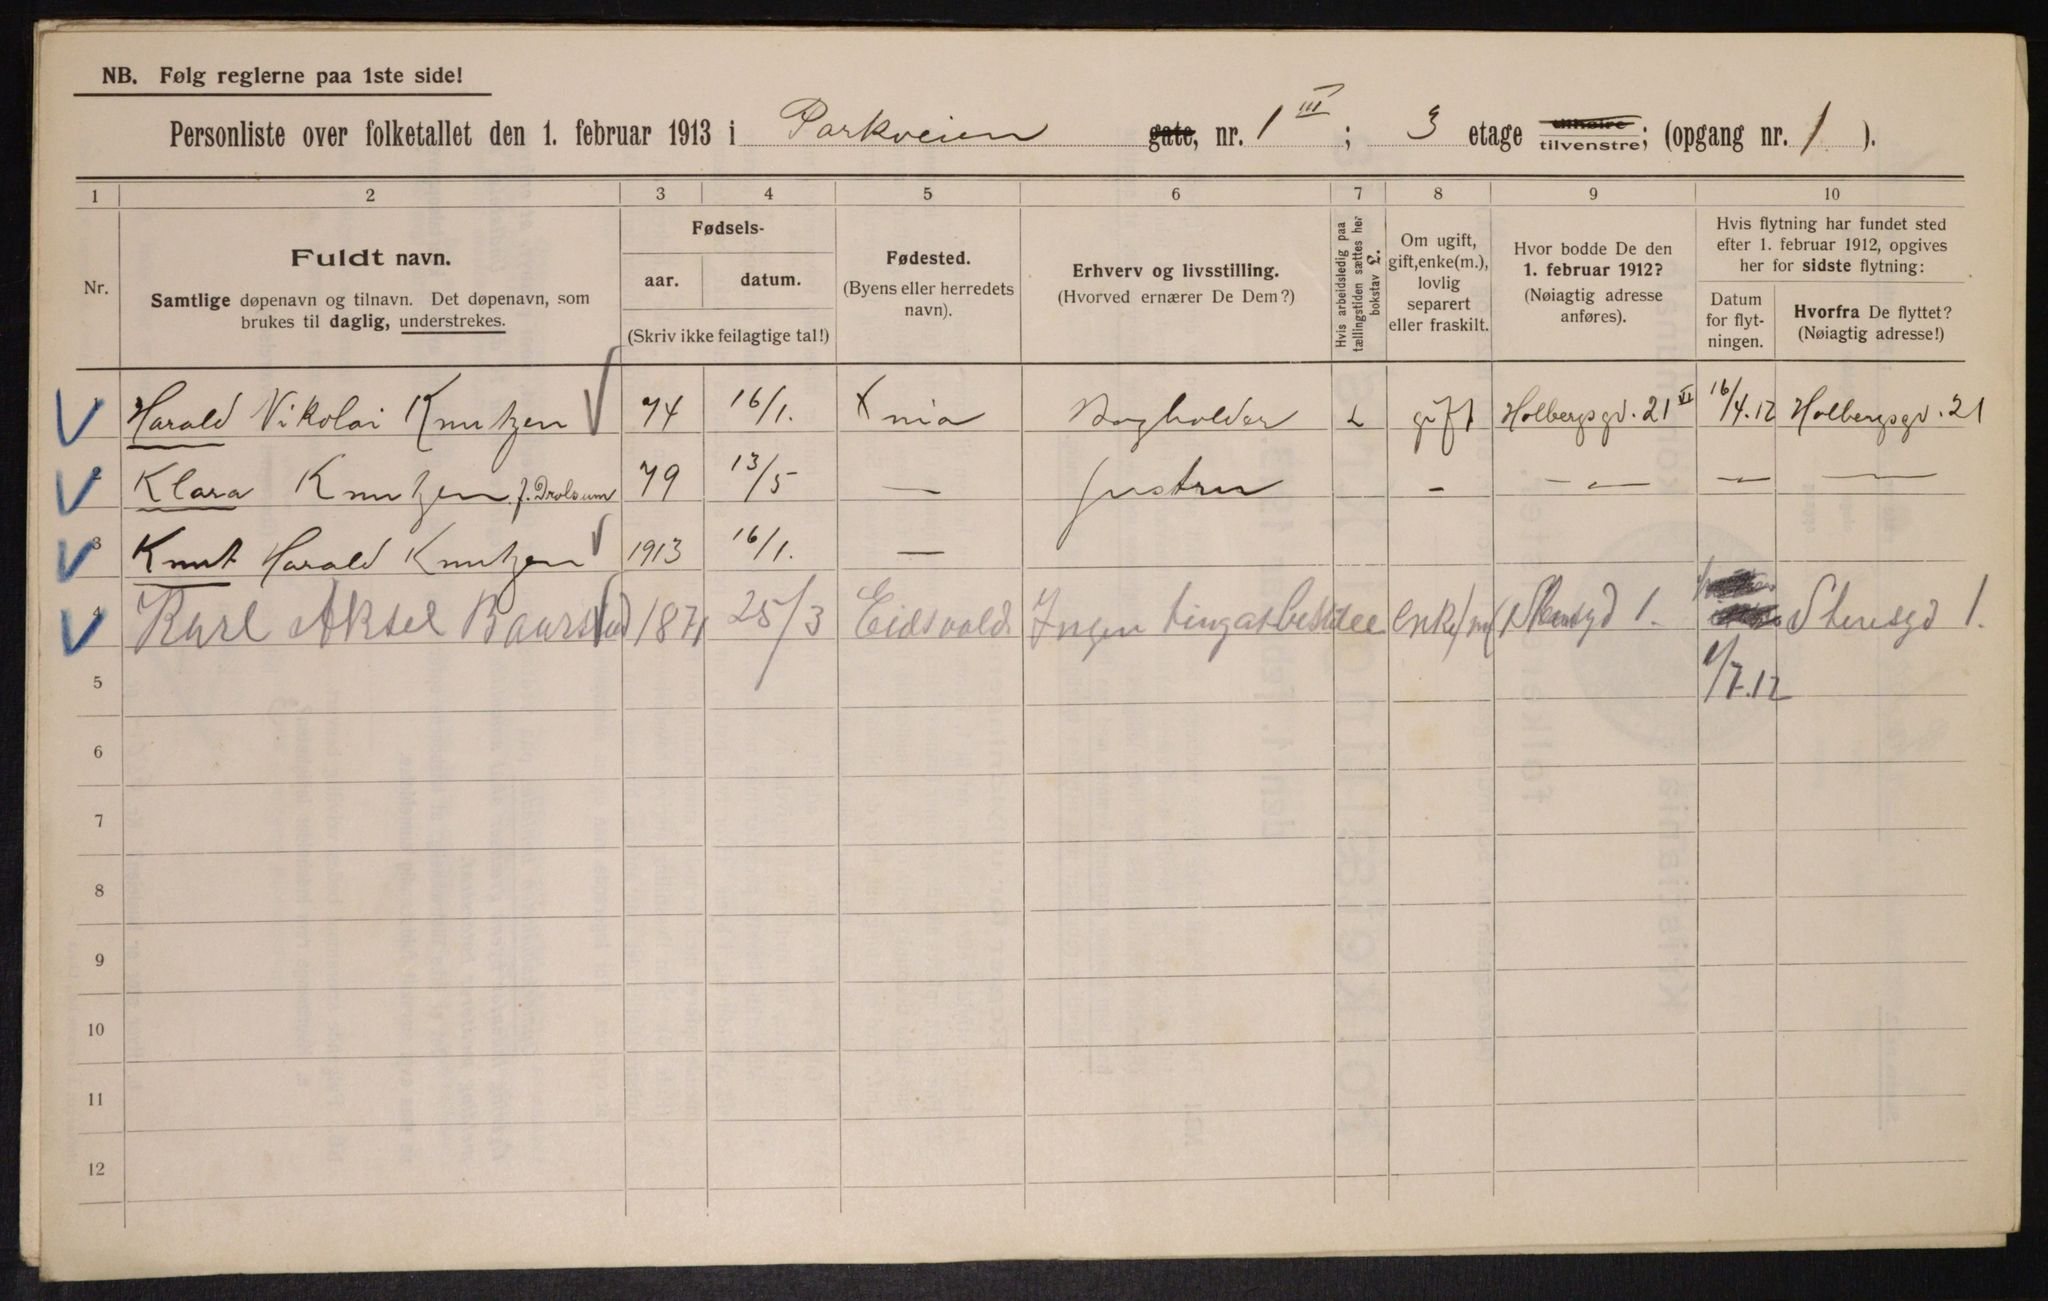 NB. Følg reglerne paa 1ste side!
Personliste over folketallet den 1. februar 1913 i Parkveien gate, nr. 1 III ; 3 etage tilhøire tilvenstre; (opgang nr. 1 ).
1 2 3 4 5 6 7 8 9 10
Nr.
Fuldt navn.
Samtlige døpenavn og tilnavn. Det døpenavn, som
brukes til daglig, understrekes.
Fødsels-
aar. datum.
(Skriv ikke feilagtige tal!)
Fødested.
(Byens eller herredets
navn).
Erhverv og livsstilling.
(Hvorved ernærer De Dem?)
Hvis arbeidsledig paa
tællingstiden sættes her
bokstav L.
Om ugift,
gift, enke(m.),
lovlig
separert
eller fraskilt.
Hvor bodde De den
1. februar 1912?
(Nøiagtig adresse
anføres).
Hvis flytning har fundet sted
efter 1. februar 1912, opgives
her for sidste flytning:
Datum
for flyt-
ningen.
Hvorfra De flyttet?
(Nøiagtig adresse!)
1 Harald Nikolai Knutzen 74 16/1. Xnia Bogholder L gift Holbergsgd. 21 VI 16/4.12 Holbergsgd. 21
2 Klara Knutzen f. Drolsum 79 13/5 — Hustru - - — — —
3 Knut Harald Knutzen 1913 16/1. —
4 Karl Aksel 1871 25/3 Eidsvold enke/m Stensgd 1. Stensgd 1.
5 1/7.12
6
7
8
9
10
11
12